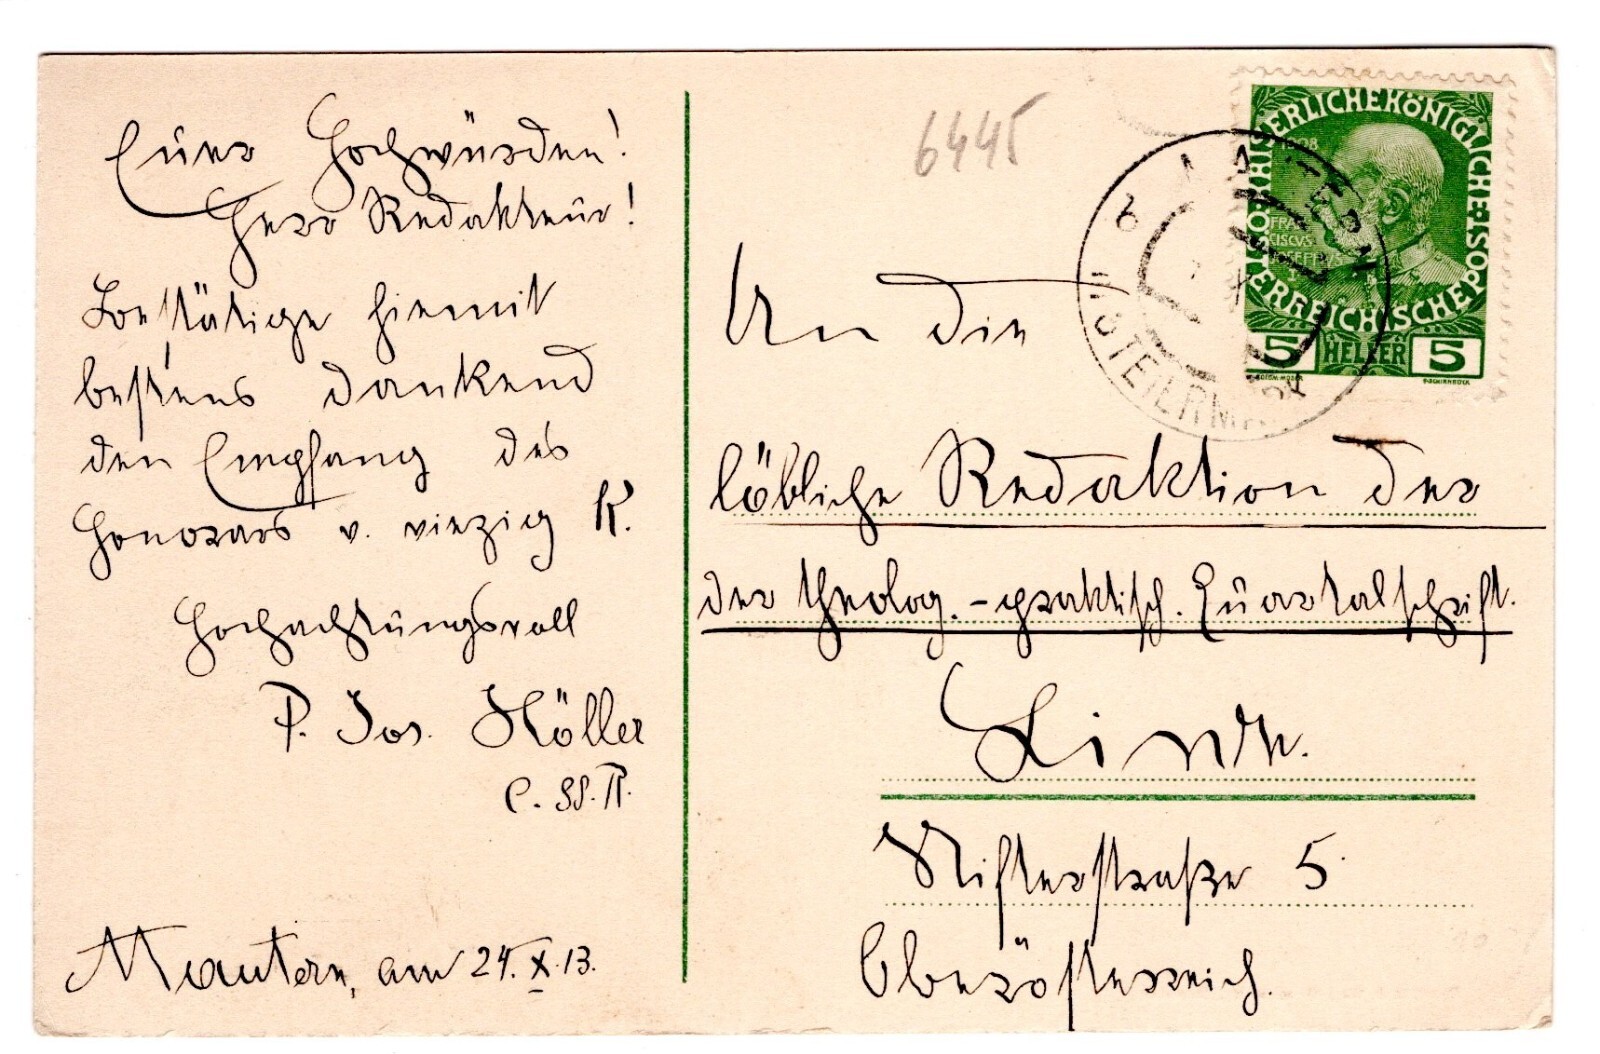 Euer Hochwürden!
Herr Redakteur!
Bestätige hiemit
bestens dankend
den Empfang des
Honorars v. vierzig K.
Hochachtungsvoll
P. Jos. Höller
C. SS. R.
Mautern, am 24. X. 13.
6445
KAISERLICHE KÖNIGLICHE ÖSTERREICHISCHE POST
1908
FRAN
CISCVS
JOSEPHVS
I
5 HELLER 5
MAUTERN
b
IN STEIERMARK
An die
löbliche Redaktion der
der theolog.-praktisch. Quartalschrift.
Linz.
Stifterstraße 5.
Oberösterreich.